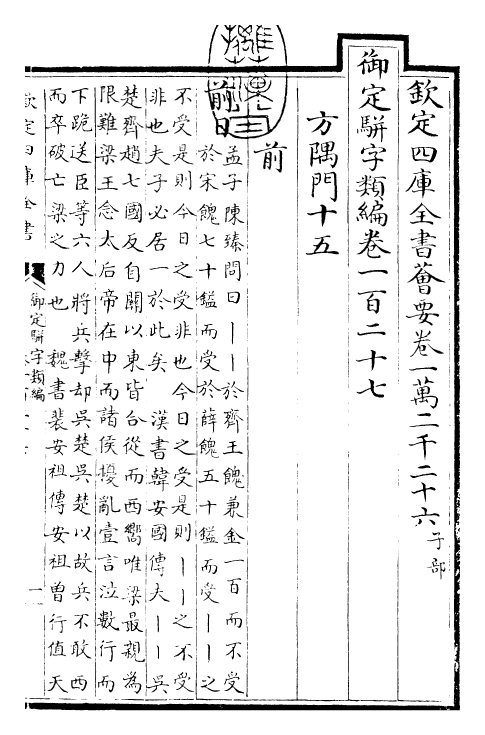 欽定四庫全書薈要卷一萬二千二十六 子部
御定駢字類編卷一百二十七
方隅門十五
前
前日
孟子陳臻問曰丨丨於齊王餽兼金一百而不受
於宋餽七十鎰而受於薛餽五十鎰而受丨丨之
不受是則今日之受非也今日之受是則丨丨之不受
非也夫子必居一於此矣 漢書韓安國傳夫丨丨吳
楚齊趙七國反自關以東皆合從而西嚮唯梁最親為
限難梁王念太后帝在中而諸侯擾亂壹言泣數行而
下跪送臣等六人將兵擊却吳楚吳楚以故兵不敢西
而卒破亡梁之力也 魏書裴安祖傳安祖曽行值天
欽定四庫全書
御定駢字類編
一